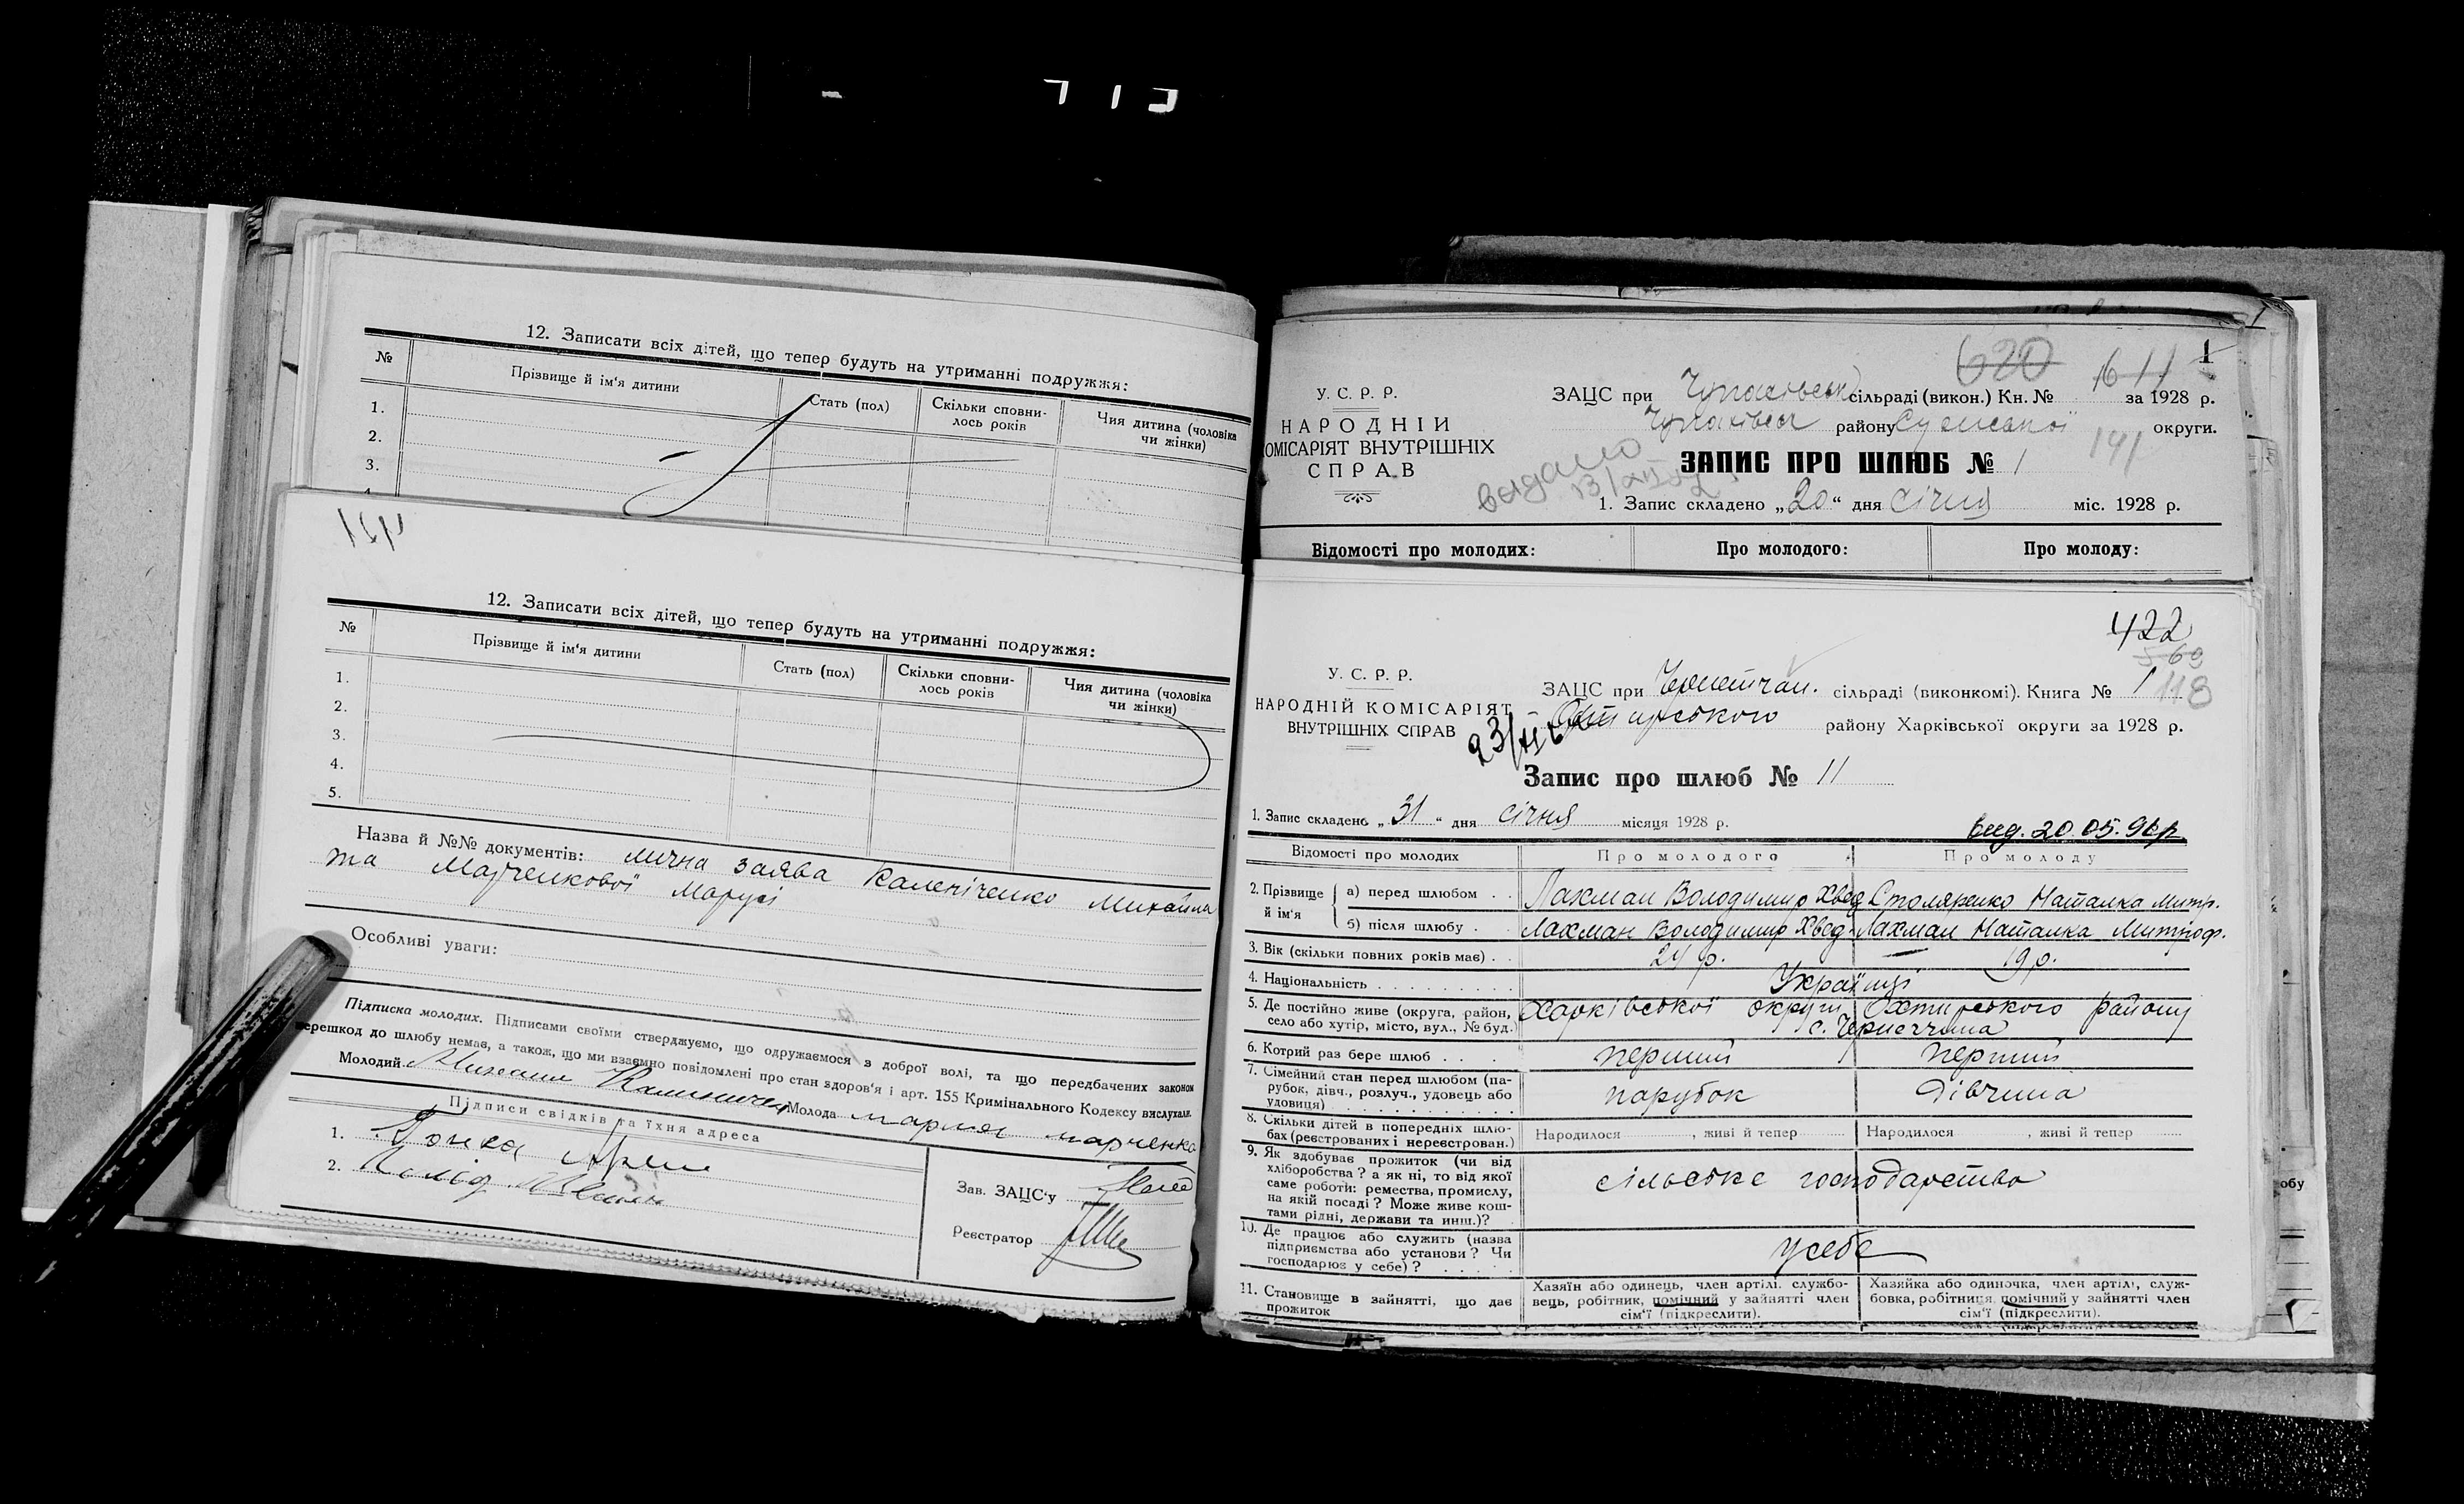 12. Записати всіх дітей, що тепер будуть на утриманні подружжя:
№ Прізвище й ім'я дитини Стать (пол) Скільки сповнилось років Чия дитина (чоловіка чи жінки)
1.
2.
3.
12. Записати всіх дітей, що тепер будуть на утриманні подружжя:
№ Прізвище й ім'я дитини Стать (пол) Скільки сповни-
лось років Чия дитина (чоловіка
чи жінки)
1.
2.
3.
4.
5.
Назва й №№ документів: лична заява Каленіченко Михайла
та Марченкової Марусі
Особливі уваги:
Підписка молодих. Підписами своїми стверджуємо, що одружаємося з доброї волі, та що передбачених законом
перешкод до шлюбу немає, а також, що ми взаємно повідомлені про стан здоров'я і арт. 155 Кримінального Кодексу вислухали.
Молодий Молода мария марченко
Підписи свідків та їхня адреса
1.
2.
Зав. ЗАЦС'у
Реєстратор
620 611 1
У. С. Р. Р.
НАРОДНІЙ
КОМІСАРІЯТ ВНУТРІШНІХ
СПРАВ
ЗАЦС при Чупахівськ сільраді (викон.) Кн. № за 1928 р.
Чупахівськ району Сумської округи.
141
видано
ЗАПИС ПРО ШЛЮБ № 1
1. Запис складено „20“ дня січня міс. 1928 р.
Відомості про молодих: Про молодого: Про молоду:
422
560
У. С. Р. Р.
НАРОДНІЙ КОМІСАРІЯТ
ВНУТРІШНІХ СПРАВ
ЗАЦС при Чернетчан. сільраді (виконкомі). Книга № 1 118
Охтирського району Харківської округи за 1928 р.
Запис про шлюб № 11
1. Запис складено „31“ дня січня місяця 1928 р.
вид. 20.05.96р.
Відомості про молодих Про молодого Про молоду
2. Прізвище й ім'я а) перед шлюбом Лахман Володимир Хвед Столяренко Наталка Митр.
б) після шлюбу Лахман Володимир Хвед. Лахман Наталка Митроф.
3. Вік (скільки повних років має) 24 р. — 19 р.
4. Національність Українці
5. Де постійно живе (округа, район, Харківської округи Охтирського району
село або хутір, місто, вул., № буд.) с. Чернеччина
6. Котрий раз бере шлюб перший перший
7. Сімейний стан перед шлюбом (па-
рубок, дівч., розлуч., удовець або
удовиця) парубок дівчина
8. Скільки дітей в попередніх шлю-
бах (реєстрованих і нереєстрован.) Народилося , живі й тепер Народилося , живі й тепер
9. Як здобуває прожиток (чи від
хліборобства? а як ні, то від якої
саме роботи: ремества, промислу,
на якій посаді? Може живе кош-
тами рідні, держави та инш.)? сільське господарство
10. Де працює або служить (назва
підприємства або установи? Чи
господарює у себе)? у себе
11. Становище в зайнятті, що дає
прожиток
Хазяїн або одинець, член артілі, службо-
вець, робітник, помічний у зайнятті член
сім'ї (підкреслити).
Хазяйка або одиночка, член артілі, служ-
бовка, робітниця, помічний у зайнятті член
сім'ї (підкреслити).
обу